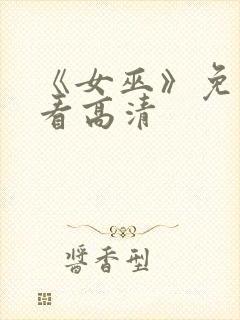 《女巫》免
看高清
酱香型